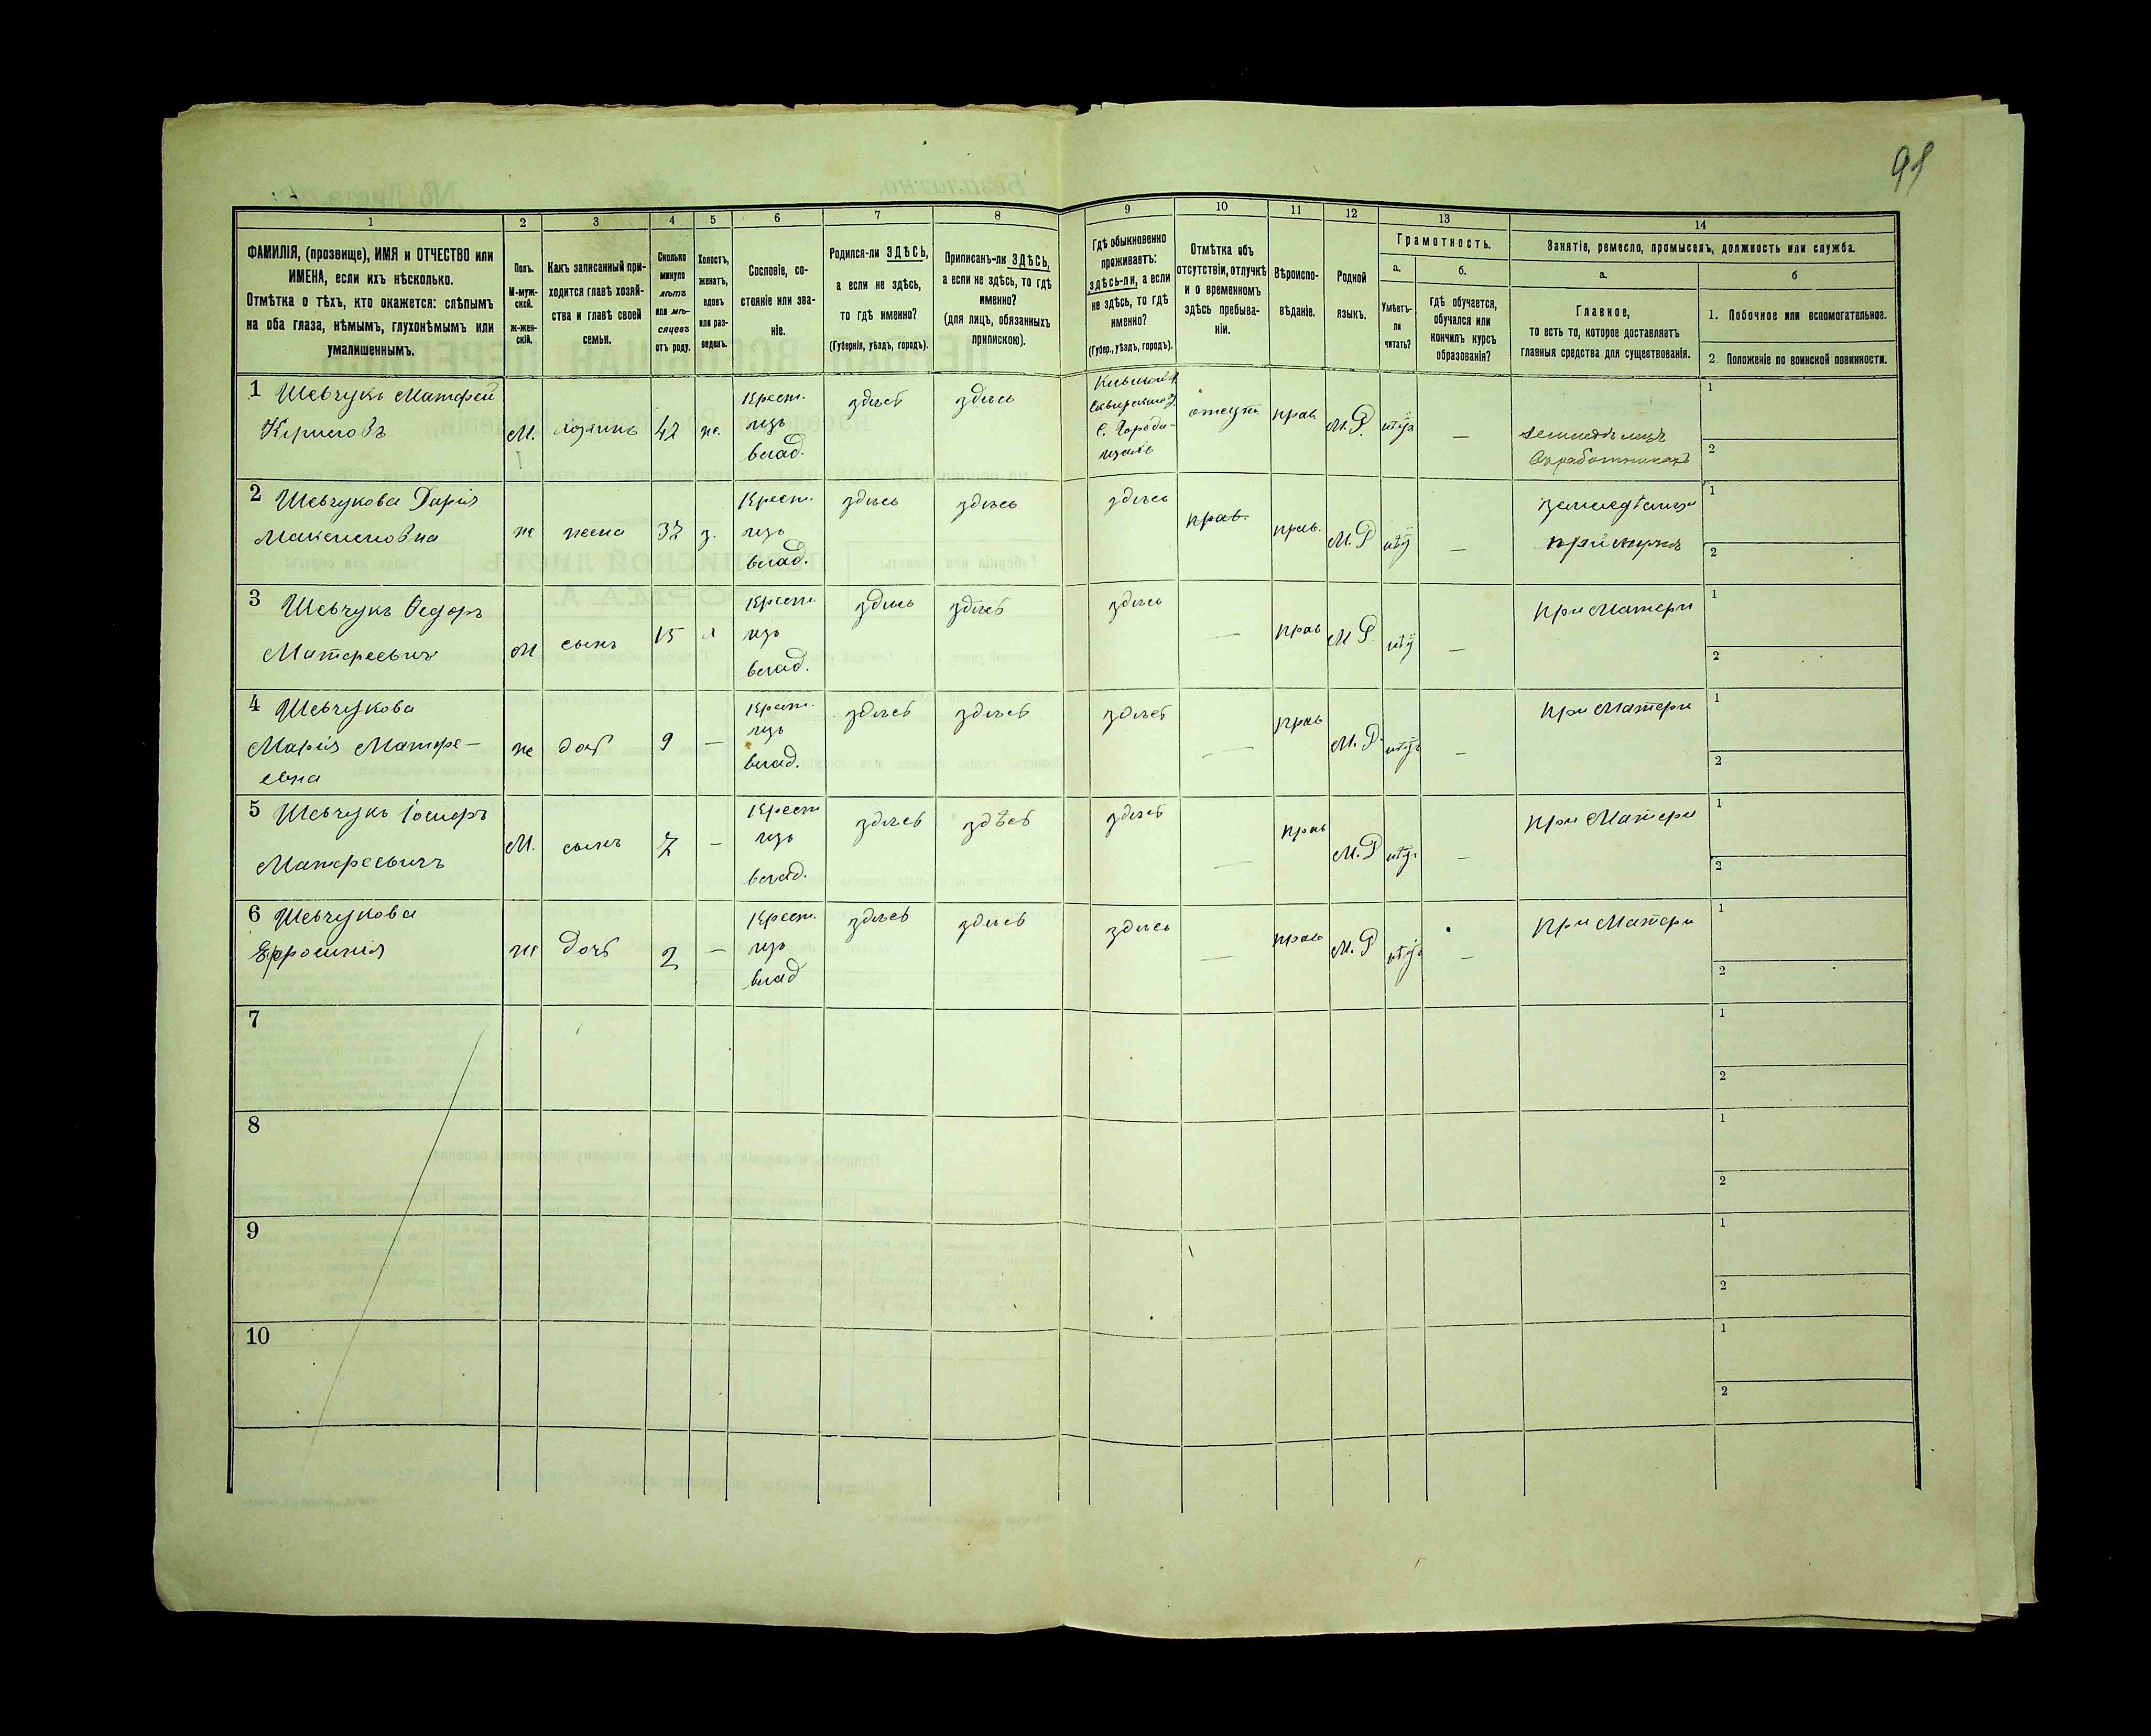 98
1 2 3 4 5 6 7 8 9 10 11 12 13 14
ФАМИЛІЯ, (прозвище), ИМЯ и ОТЧЕСТВО или
ИМЕНА, если ихъ нѣсколько.
Отмѣтка о тѣхъ, кто окажется: слѣпымъ
на оба глаза, нѣмымъ, глухонѣмымъ или
умалишеннымъ.
Полъ.
М-муж-
ской.
Ж-жен-
скій.
Какъ записанный при-
ходится главѣ хозяй-
ства и главѣ своей
семьи.
Сколько
минуло
лѣтъ
или мѣ-
сяцевъ
отъ роду.
Холостъ,
женатъ,
вдовъ
или раз-
веденъ.
Сословіе, со-
стояніе или зва-
ніе.
Родился-ли ЗДѢСЬ,
а если не здѣсь,
то гдѣ именно?
(Губернія, уѣздъ, городъ).
Приписанъ-ли ЗДѢСЬ,
а если не здѣсь, то гдѣ
именно?
(для лицъ, обязанныхъ
припискою).
Гдѣ обыкновенно
проживаетъ:
здѣсь-ли, а если
не здѣсь, то гдѣ
именно?
(Губер., уѣздъ, городъ).
Отмѣтка объ
отсутствіи, отлучкѣ
и о временномъ
здѣсь пребыва-
ніи.
Вѣроиспо-
вѣданіе.
Родной
языкъ.
Грамотность.
а.
Умѣетъ-
ли
читать?
б.
гдѣ обучается,
обучался или
кончилъ курсъ
образованія?
Занятіе, ремесло, промыселъ, должность или служба.
а.
Главное,
то есть то, которое доставляетъ
главныя средства для существованія.
б
1. Побочное или вспомогательное.
2. Положеніе по воинской повинности.
1 Шевчукъ Матфей
Кириловъ
М. хозяинъ 42 же.
Крест.
изъ
влад.
здѣсь здѣсь
Кіевской г.
Сквирскаго у.
с. Городи-
отсут. прав. М.Р. нѣтъ —
земледѣлецъ
1
2
2 Шевчукова Дарія
Максимовна
ж жена 37 з.
Крест.
изъ
влад.
здѣсь здѣсь здѣсь прав. прав. М.Р нѣтъ —
при мужѣ
1
2
3 Шевчукъ Ѳедоръ
Матфеевичъ
М сынъ 15
Крест.
изъ
влад.
здѣсь здѣсь здѣсь — прав М Р. нѣтъ —
при Матери
1
2
4 Шевчукова
Марія Матфе-
евна
ж доч 9 —
Крест.
изъ
влад.
здѣсь здѣсь здѣсь — прав М.Р. нѣтъ —
при Матери
1
2
5 Шевчукъ Іосифъ
Матфеевичъ
М. сынъ 7 —
Крест
изъ
влад.
здѣсь здѣсь здѣсь — прав М.Р нѣтъ —
при Матери
1
2
6 Шевчукова
Ефросинія
ж дочь 2 —
Крест.
изъ
влад
здѣсь здѣсь здѣсь — прав М.Р нѣтъ —
при Матери
1
2
7
1
2
8
1
2
9
1
2
10
1
2